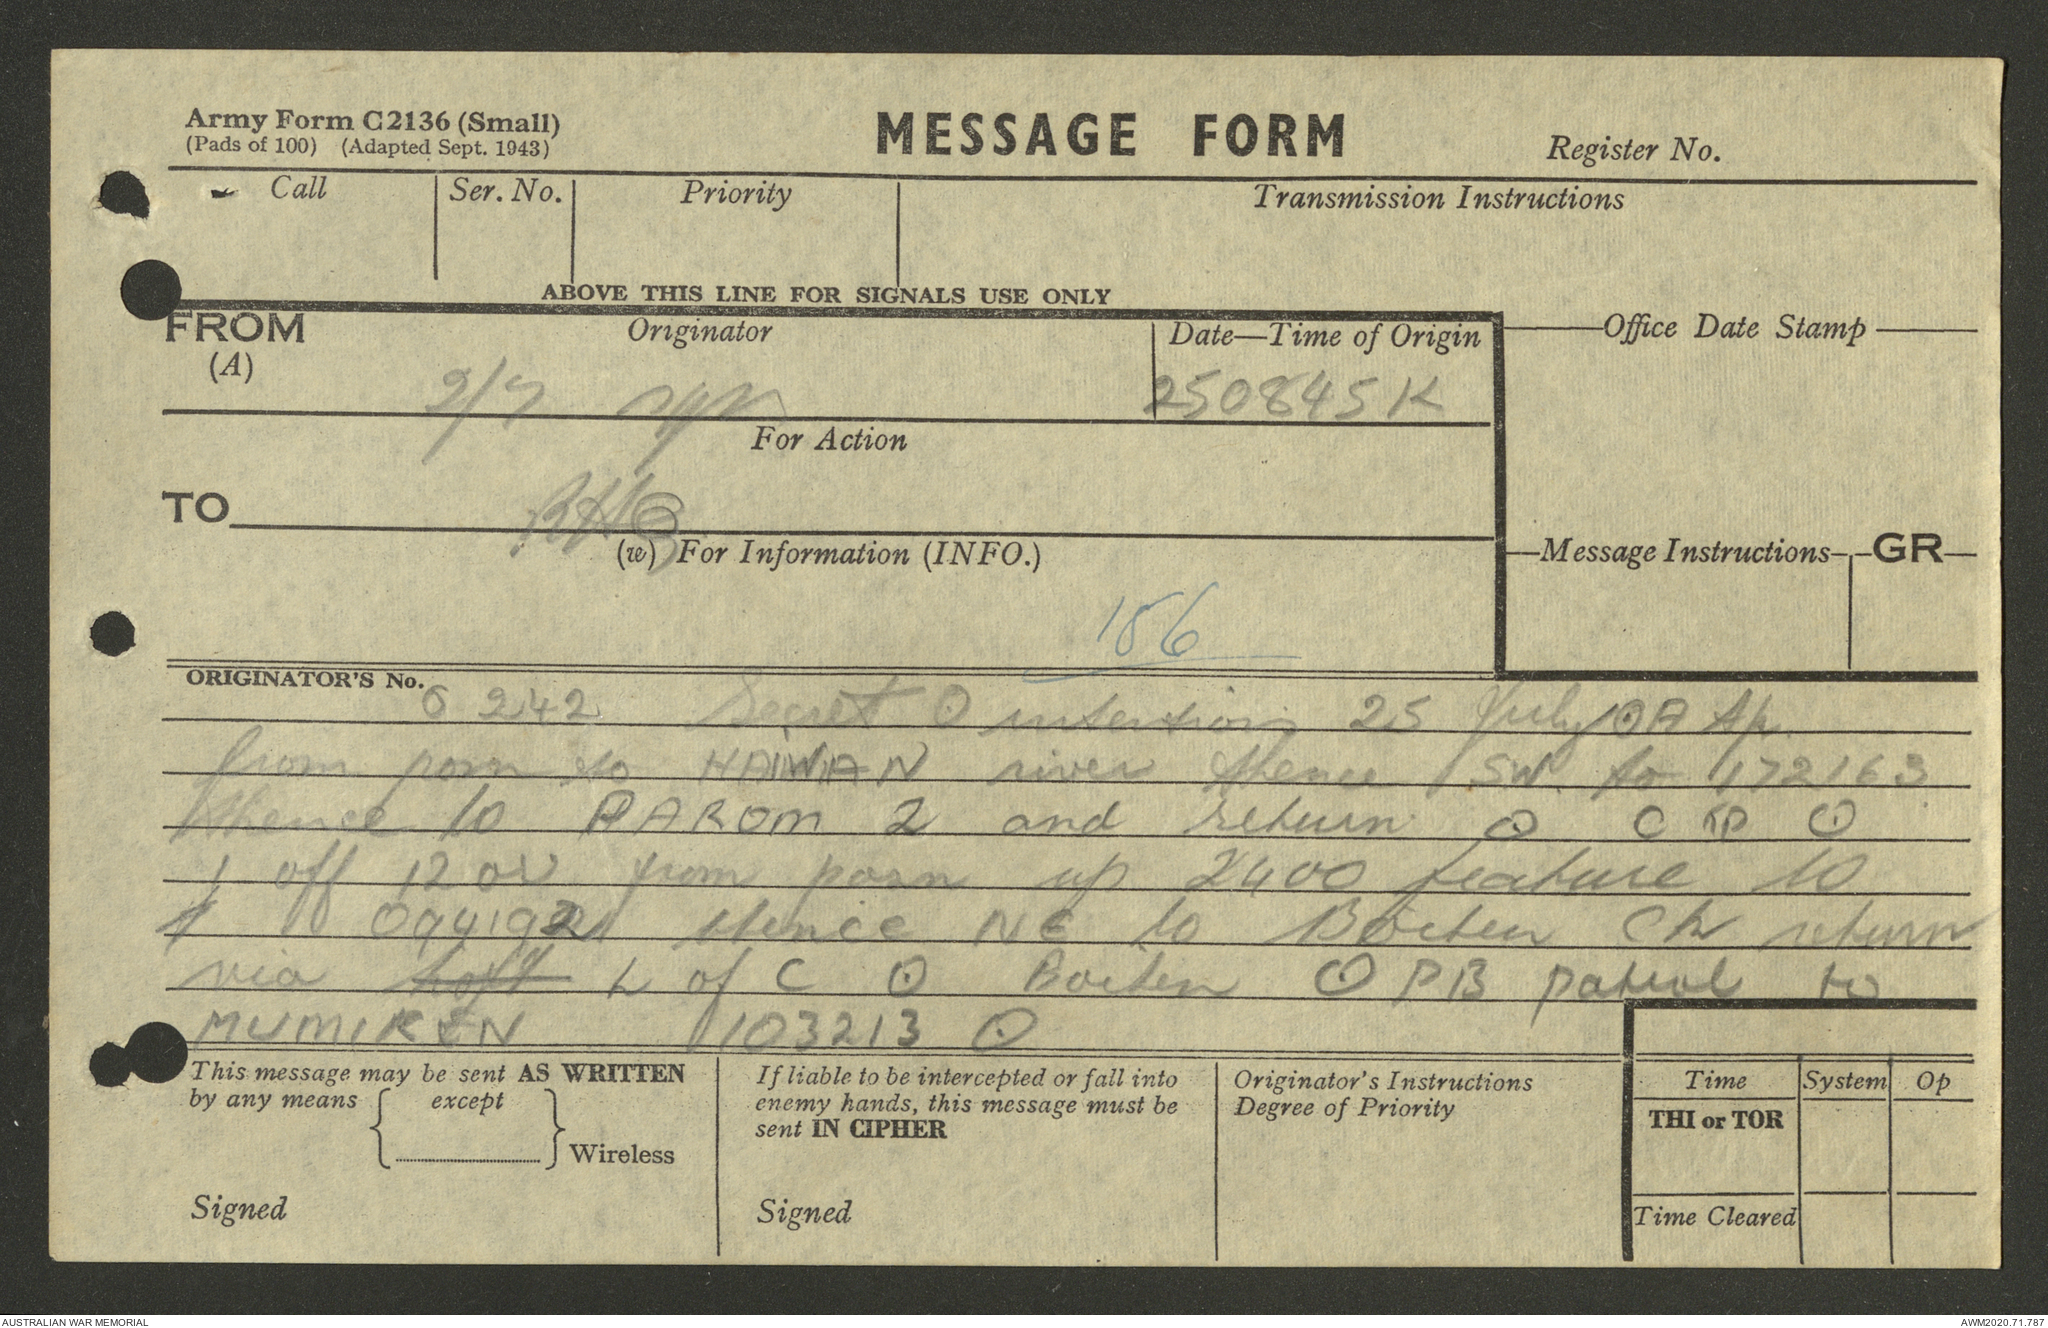 Army Form C2136 (Small)
(Pads of 100) (Adapted Sept. 1943)
MESSAGE FORM
Register No.
Call Ser. No. Priority Transmission Instructions
ABOVE THIS LINE FOR SIGNALS USE ONLY
FROM Originator Date—Time of Origin Office Date Stamp
(A)
2/7 250845K
For Action
TO RHQ
(w) For Information (INFO.) Message Instructions GR
186
ORIGINATOR'S No.
O 242 Secret O intentions 25 July O A tp
from posn to HAIWIAN river thence SW to 172163
thence to PAROM 2 and return O C tp O
1 off 12 or from posn up 2400 feature to
094192 thence NE to Boiken Ck return
via hoft L of C O Boiken O PB patrol to
MUMIKEN 103213 O
This message may be sent AS WRITTEN
by any means except
Wireless
Signed
If liable to be intercepted or fall into
enemy hands, this message must be
sent IN CIPHER
Signed
Originator's Instructions
Degree of Priority
Time System Op
THI or TOR
Time Cleared
AUSTRALIAN WAR MEMORIAL
AWM2020.71.787